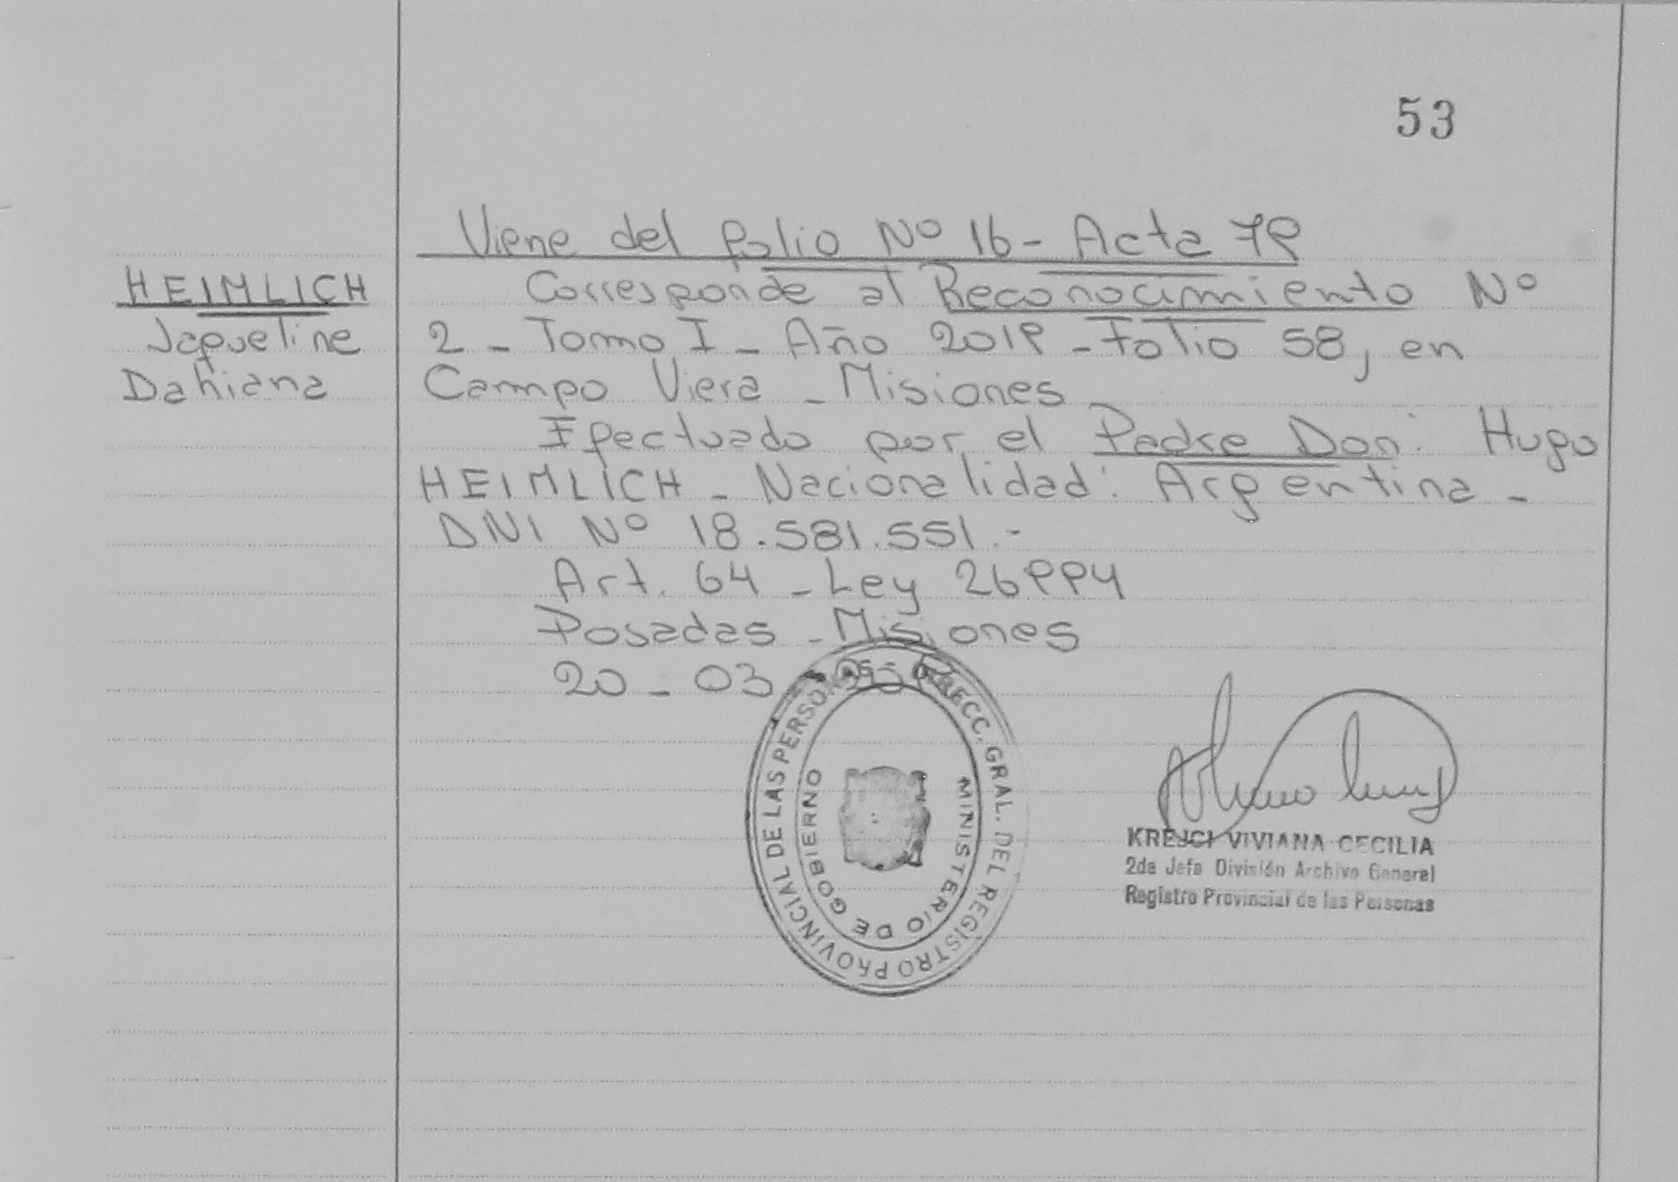 53
Viene del folio Nº 16 - Acta 79
HEIMLICH
Jaqueline
Dahiana
Corresponde al Reconocimiento Nº
2 - Tomo I - Año 2019 - Folio 58, en
Campo Viera - Misiones
Efectuado por el Padre Don: Hugo
HEIMLICH - Nacionalidad: Argentina -
DNI Nº 18.581.551.-
Art. 64 - Ley 26994
Posadas - Misiones
20 - 03
DIRECC. GRAL. DEL REGISTRO PROVINCIAL DE LAS PERSONAS
MINISTERIO DE GOBIERNO
KREJCI VIVIANA CECILIA
2da Jefa División Archivo General
Registro Provincial de las Personas